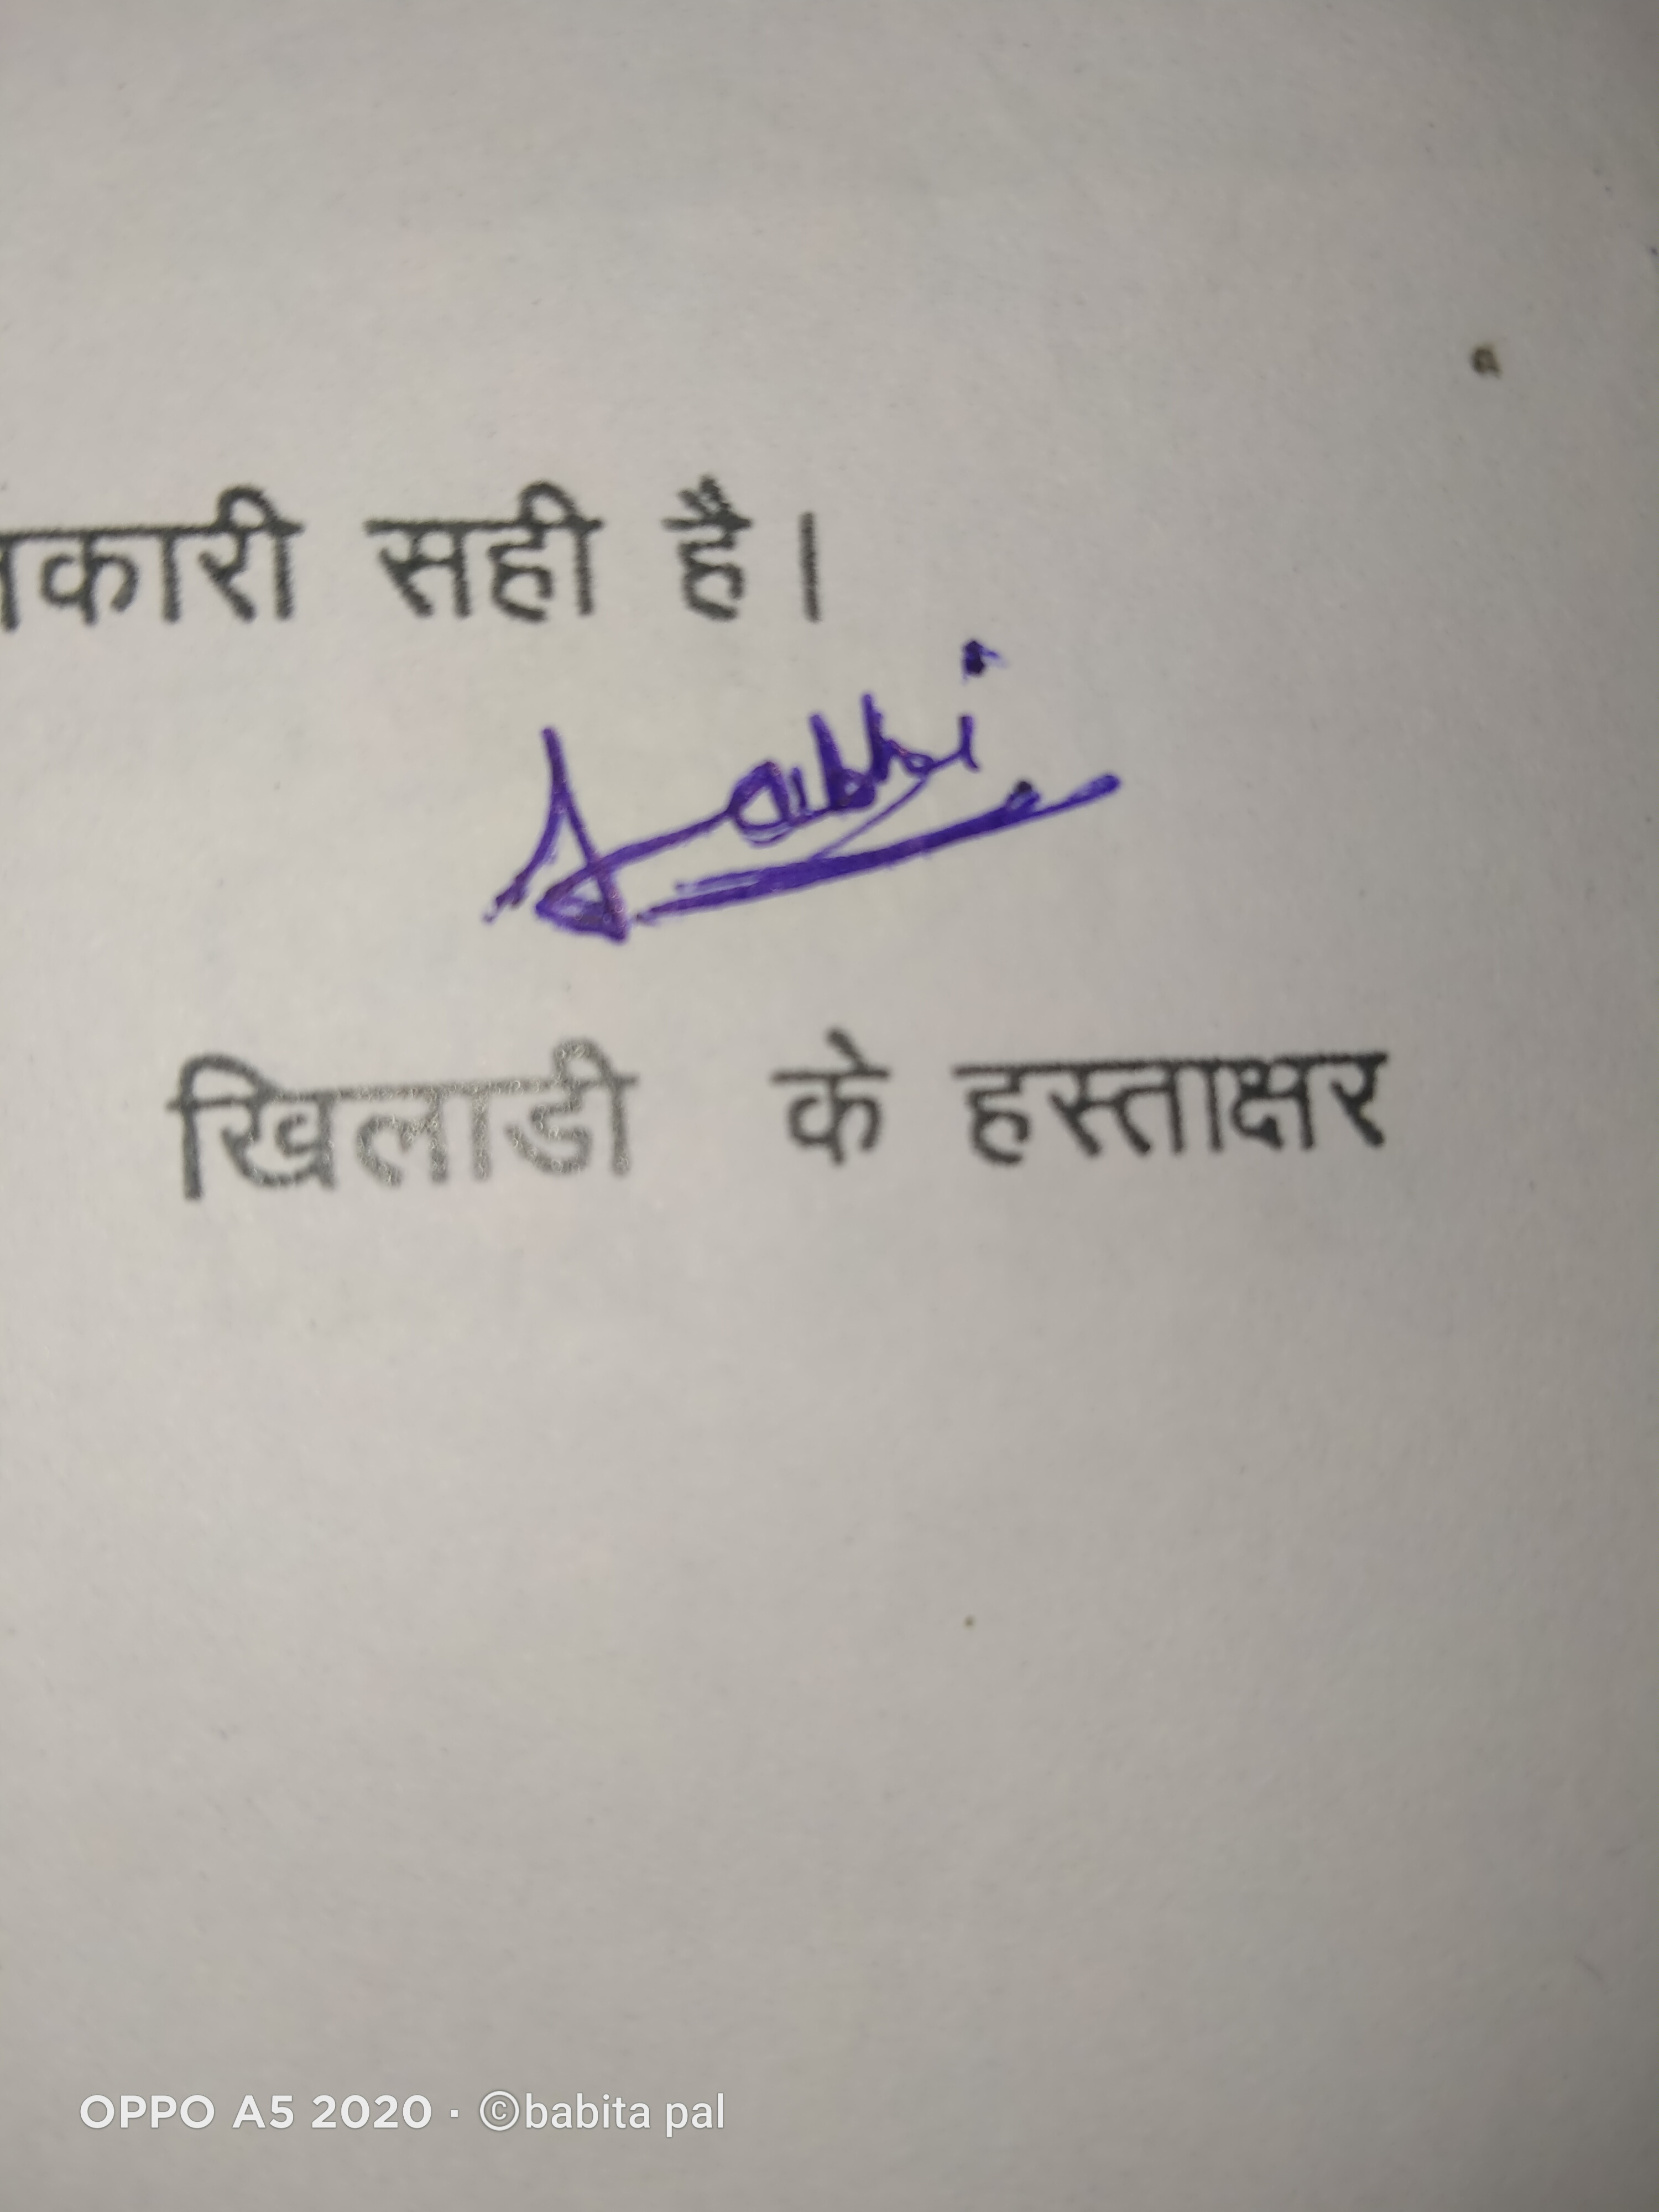 कारी सही है।
खिलाडी के हस्ताक्षर
OPPO A5 2020 · ©babita pal